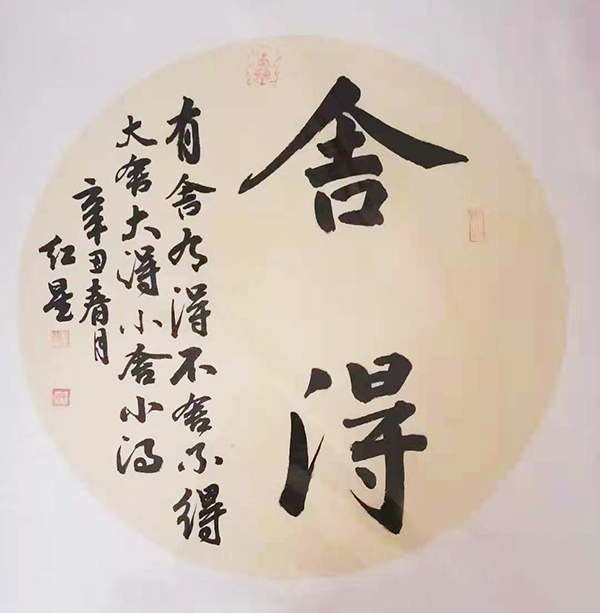 舍得
有舍有得不舍不得
大舍大得小舍小得
辛丑春月
红星